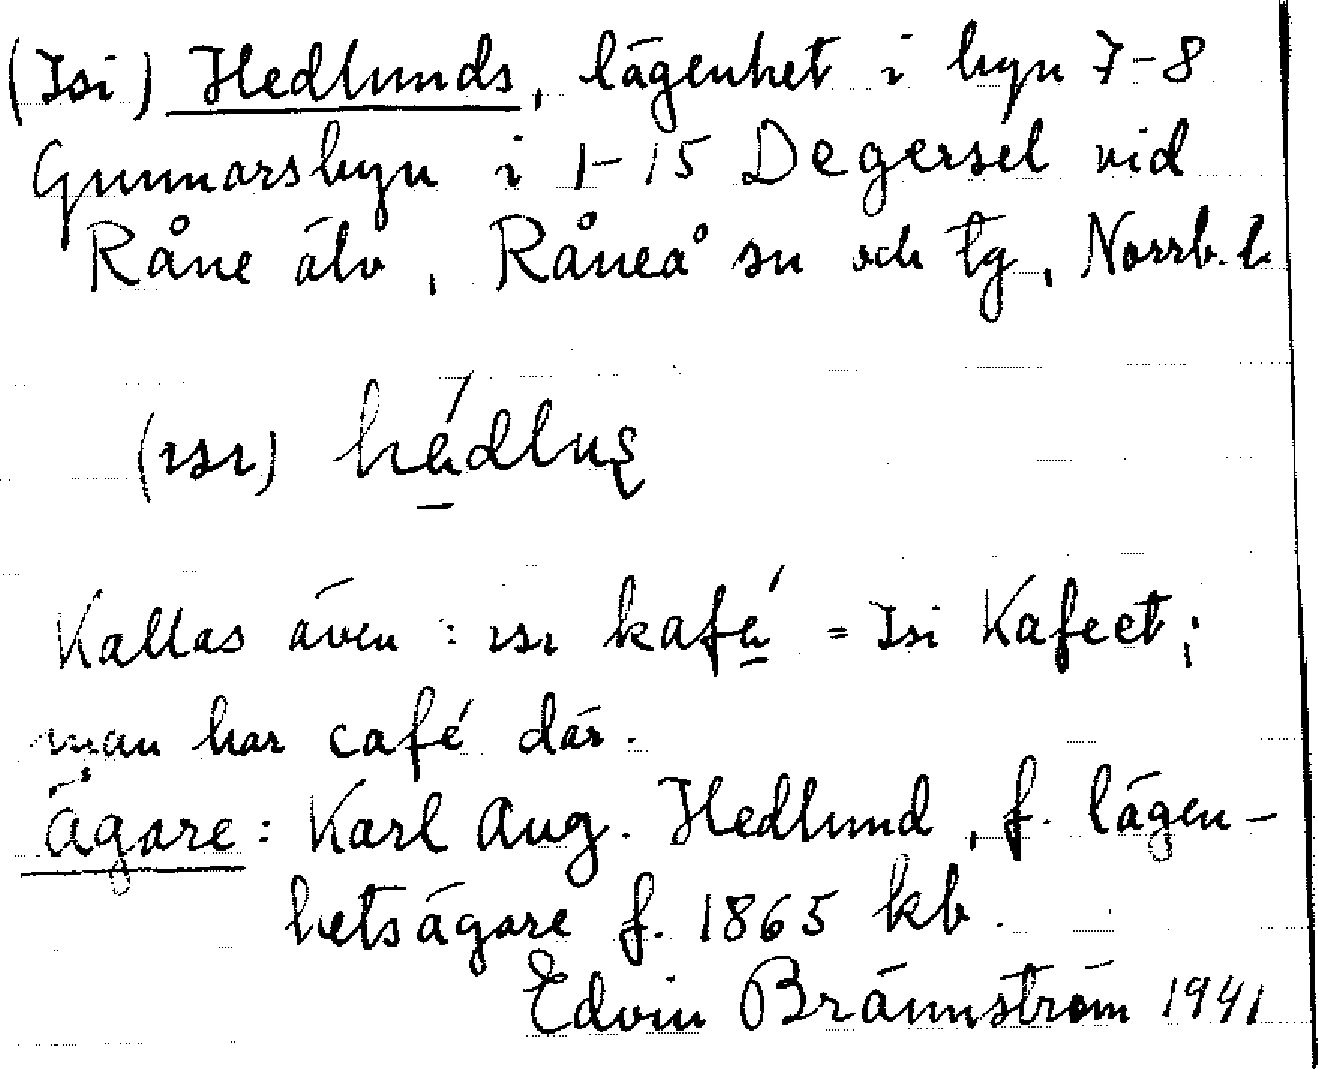 (Isi) Hedlunds, lägenhet i byn 7-8
Gunnarsbyn i 1-15 Degersel vid
Råne älv, Råneå sn och tg, Norrb. l.
(ɪsɪ)
Kallas även: ɪsɪ = Isi Kafeet;
man har café där.
Ägare: Karl Aug. Hedlund, f. lägen-
hetsägare f. 1865 kb.
Edvin Brännström 1941